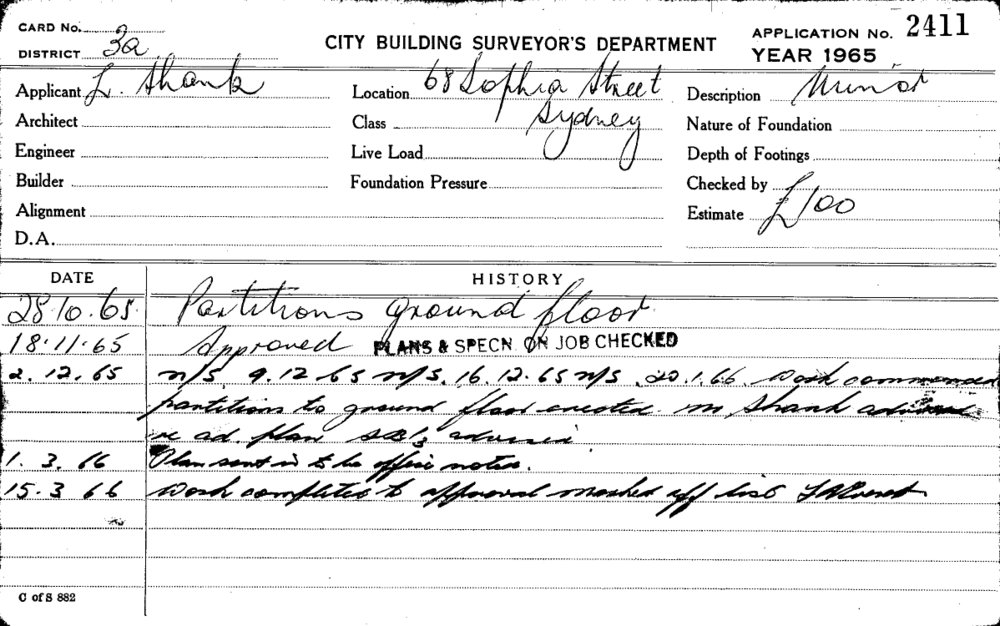 CARD No.
DISTRICT 3a
CITY BUILDING SURVEYOR'S DEPARTMENT
APPLICATION No. 2411
YEAR 1965
Applicant L. Shank
Location 68 Sophia Street
Sydney
Description Minor
Architect
Class
Nature of Foundation
Engineer
Live Load
Depth of Footings
Builder
Foundation Pressure
Checked by
Alignment
Estimate £100
D.A.
DATE
HISTORY
28.10.65 Partitions ground floor
18.11.65 Approved PLANS & SPECN ON JOB CHECKED
2.12.65 n/s. 9.12.65 n/s. 16.12.65 n/s. 20.1.66. Work commenced
partitions to ground floor erected. Mr Shank advised
re ad plan advised
1.3.66 Plan sent in to the office noted.
15.3.66 Work completed to approval marked off list
C of S 882